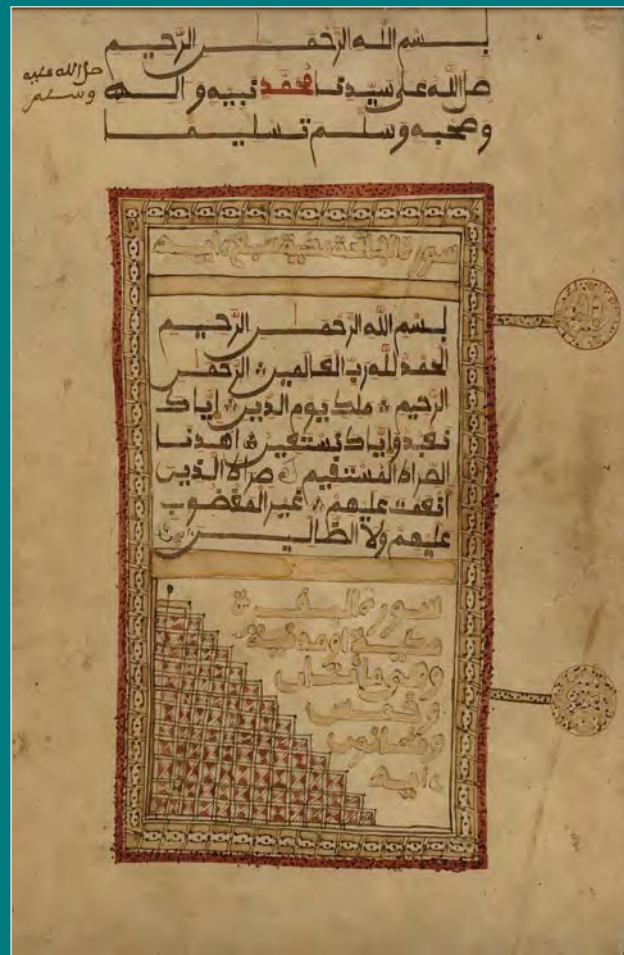 بسم الله الرحمن الرحيم
صل الله على سيدنا محمد نبيه واله
وصحبه وسلم تسليما
صل الله عليه
وسلم
سورة الفاتحة مكية سبع ءاية
بسم الله الرحمن الرحيم
الحمد لله رب العالمين الرحمن
الرحيم ملك يوم الدين إياك
نعبد وإياك نستعين اهدنا
الصراط المستقيم صراط الذين
أنعمت عليهم غير المغضوب
عليهم ولا الضالين
سورة البقرة
مكية او مدنية
وهي مائتان
وخمس
وثمانون
ءاية